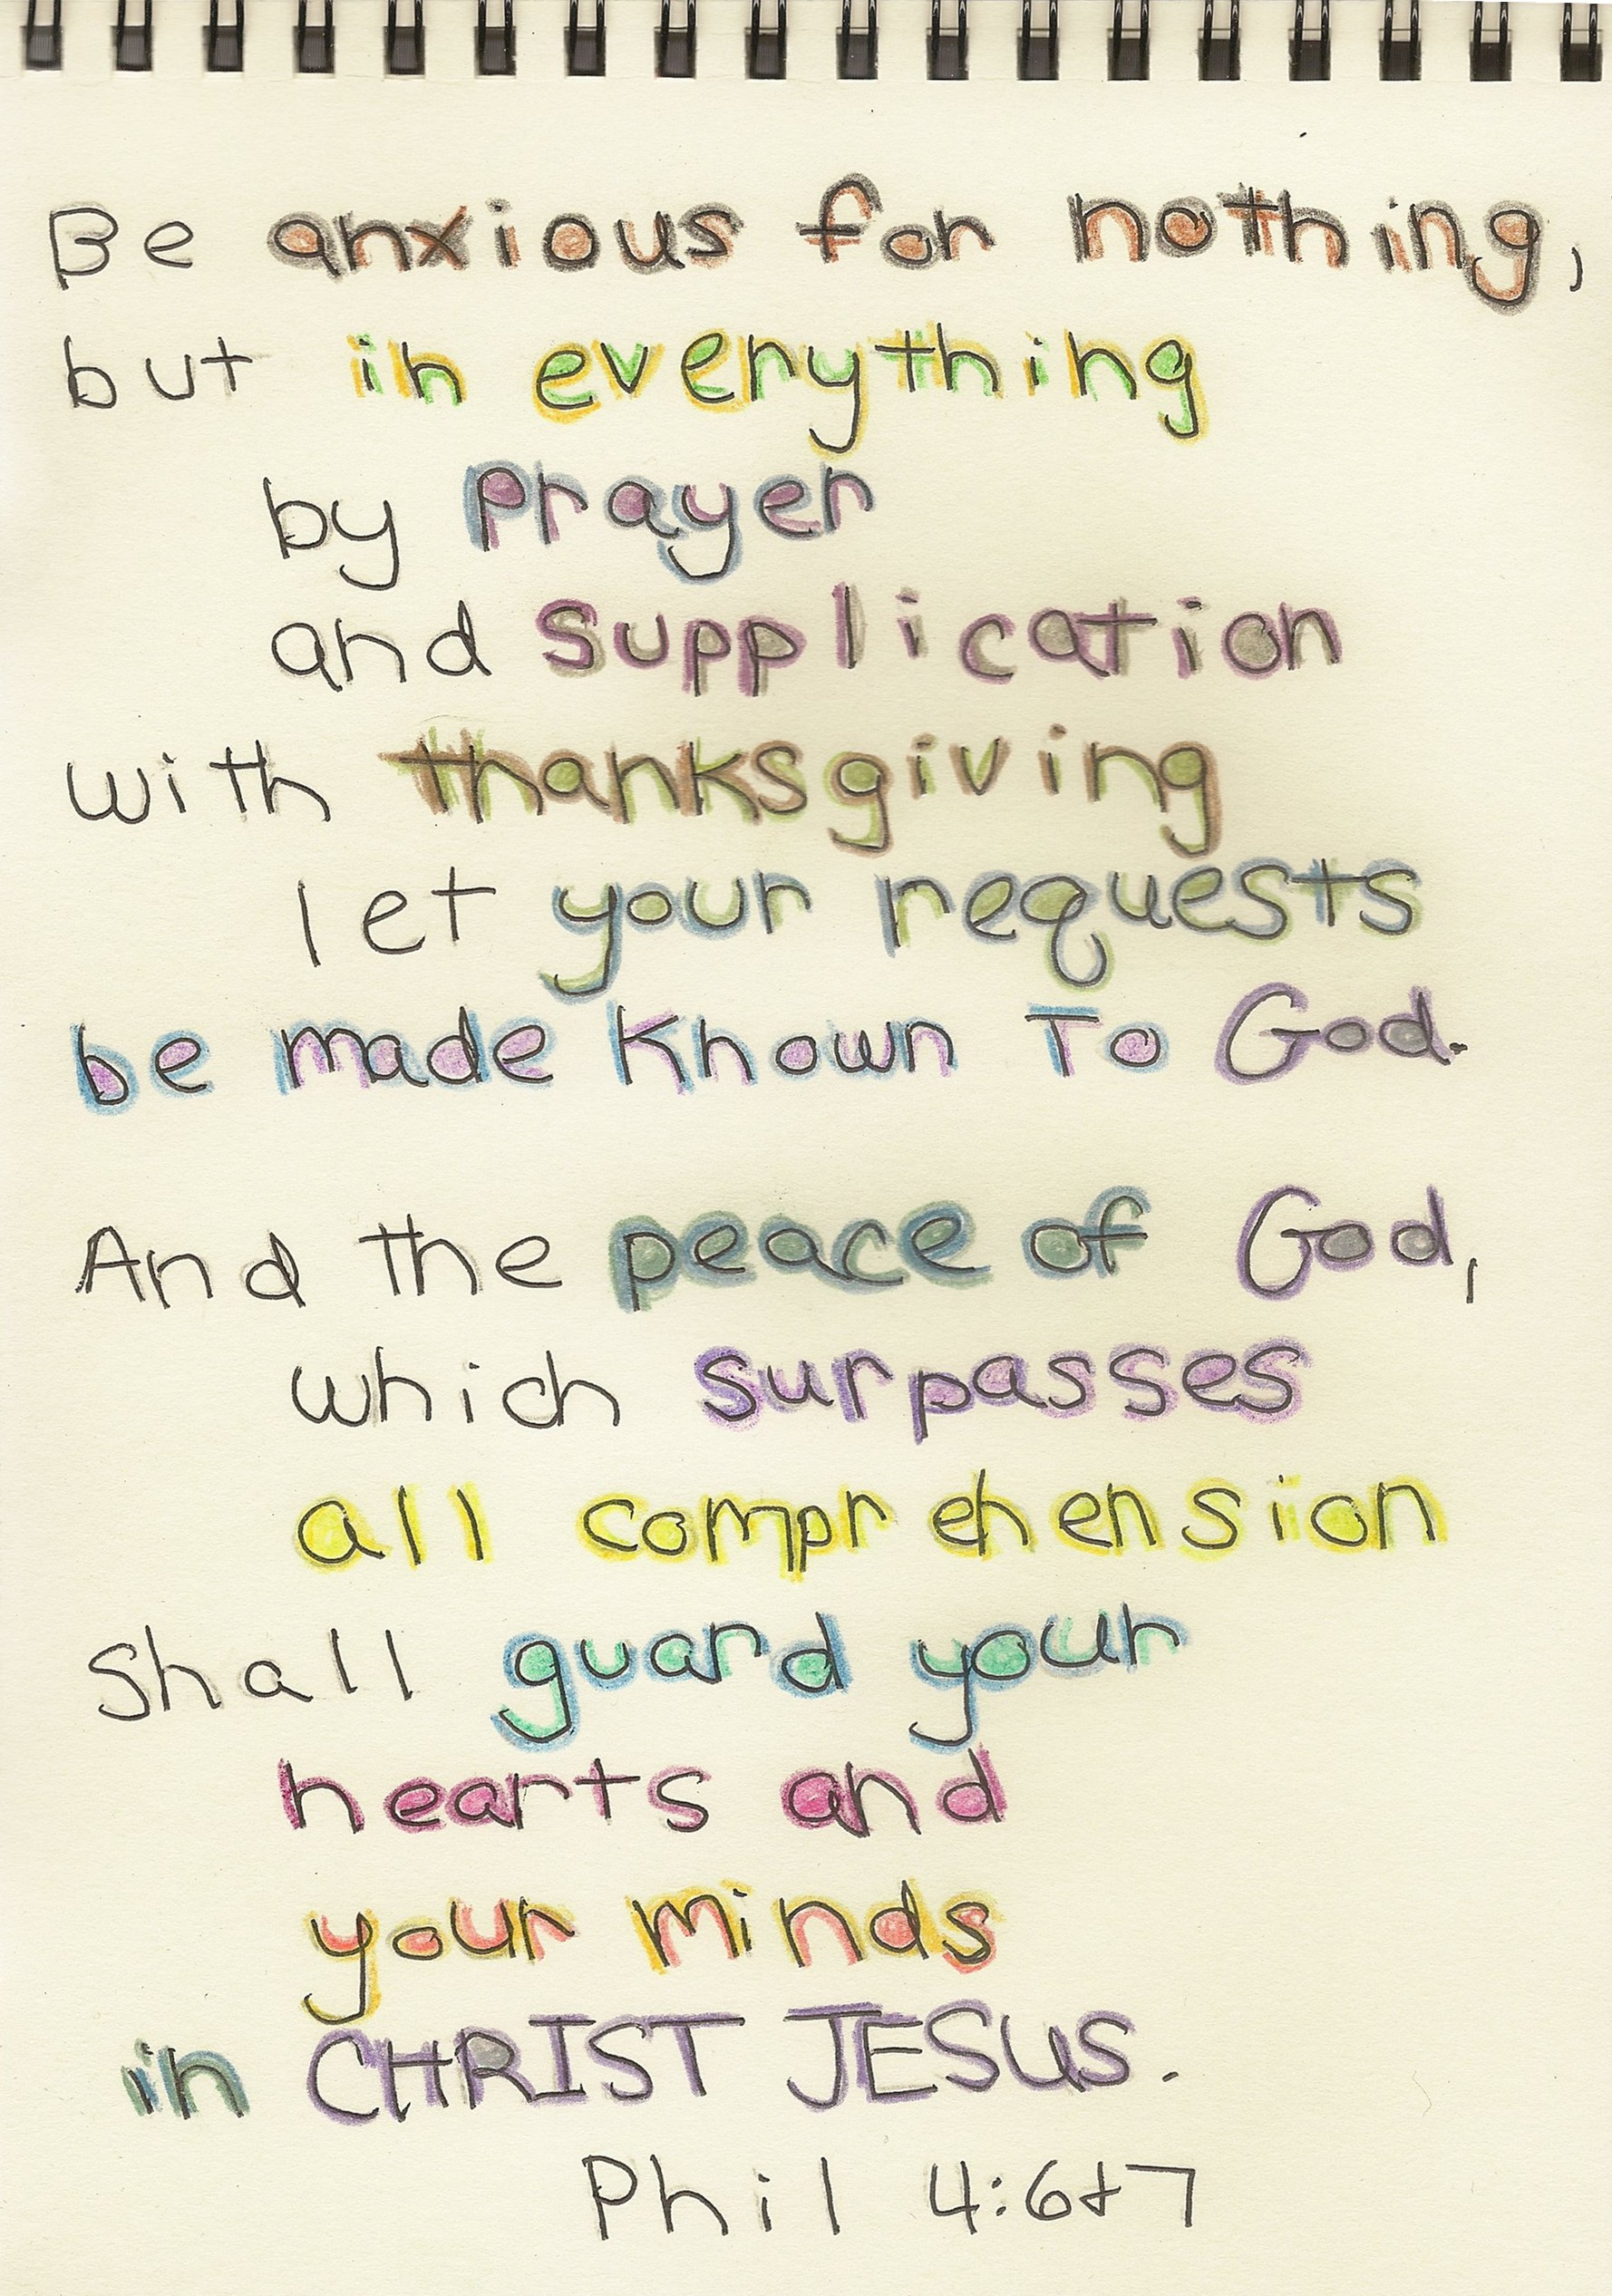 Be anxious for nothing,
but in everything
by Prayer
and Supplication
with thanksgiving
let your requests
be made Known To God.
And the peace of God,
which surpasses
all comprehension
Shall guard your
hearts and
your minds
in CHRIST JESUS.
Phil 4:6+7